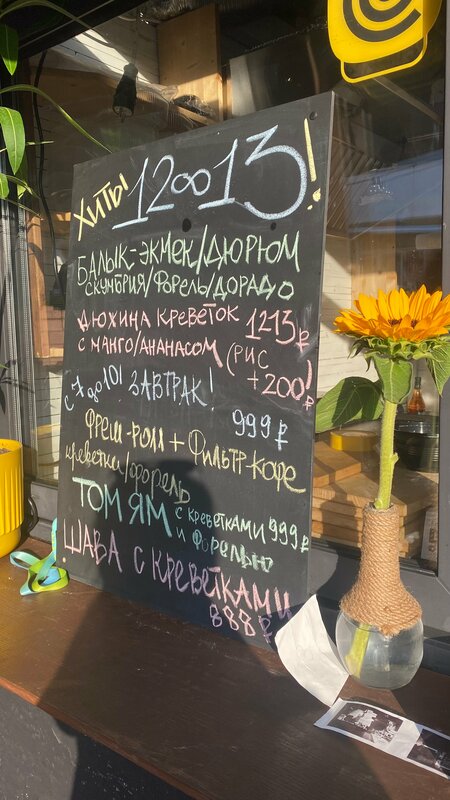 Хиты 12∞13!
БАЛЫК-ЭКМЕК/ДЮРЮМ
СКУМБРИЯ/ФОРЕЛЬ/ДОРАДО
ДЮЖИНА КРЕВЕТОК 1213₽
С МАНГО/АНАНАСОМ (РИС +200)
С 7 до 10! ЗАВТРАК!
999₽
ФРЕШ-РОЛЛ + ФИЛЬТР-КОФЕ
КРЕВЕТКИ/ФОРЕЛЬ
ТОМ ЯМ С КРЕВЕТКАМИ 999₽
И ФОРЕЛЬЮ
ШАВА С КРЕВЕТКАМИ
888₽